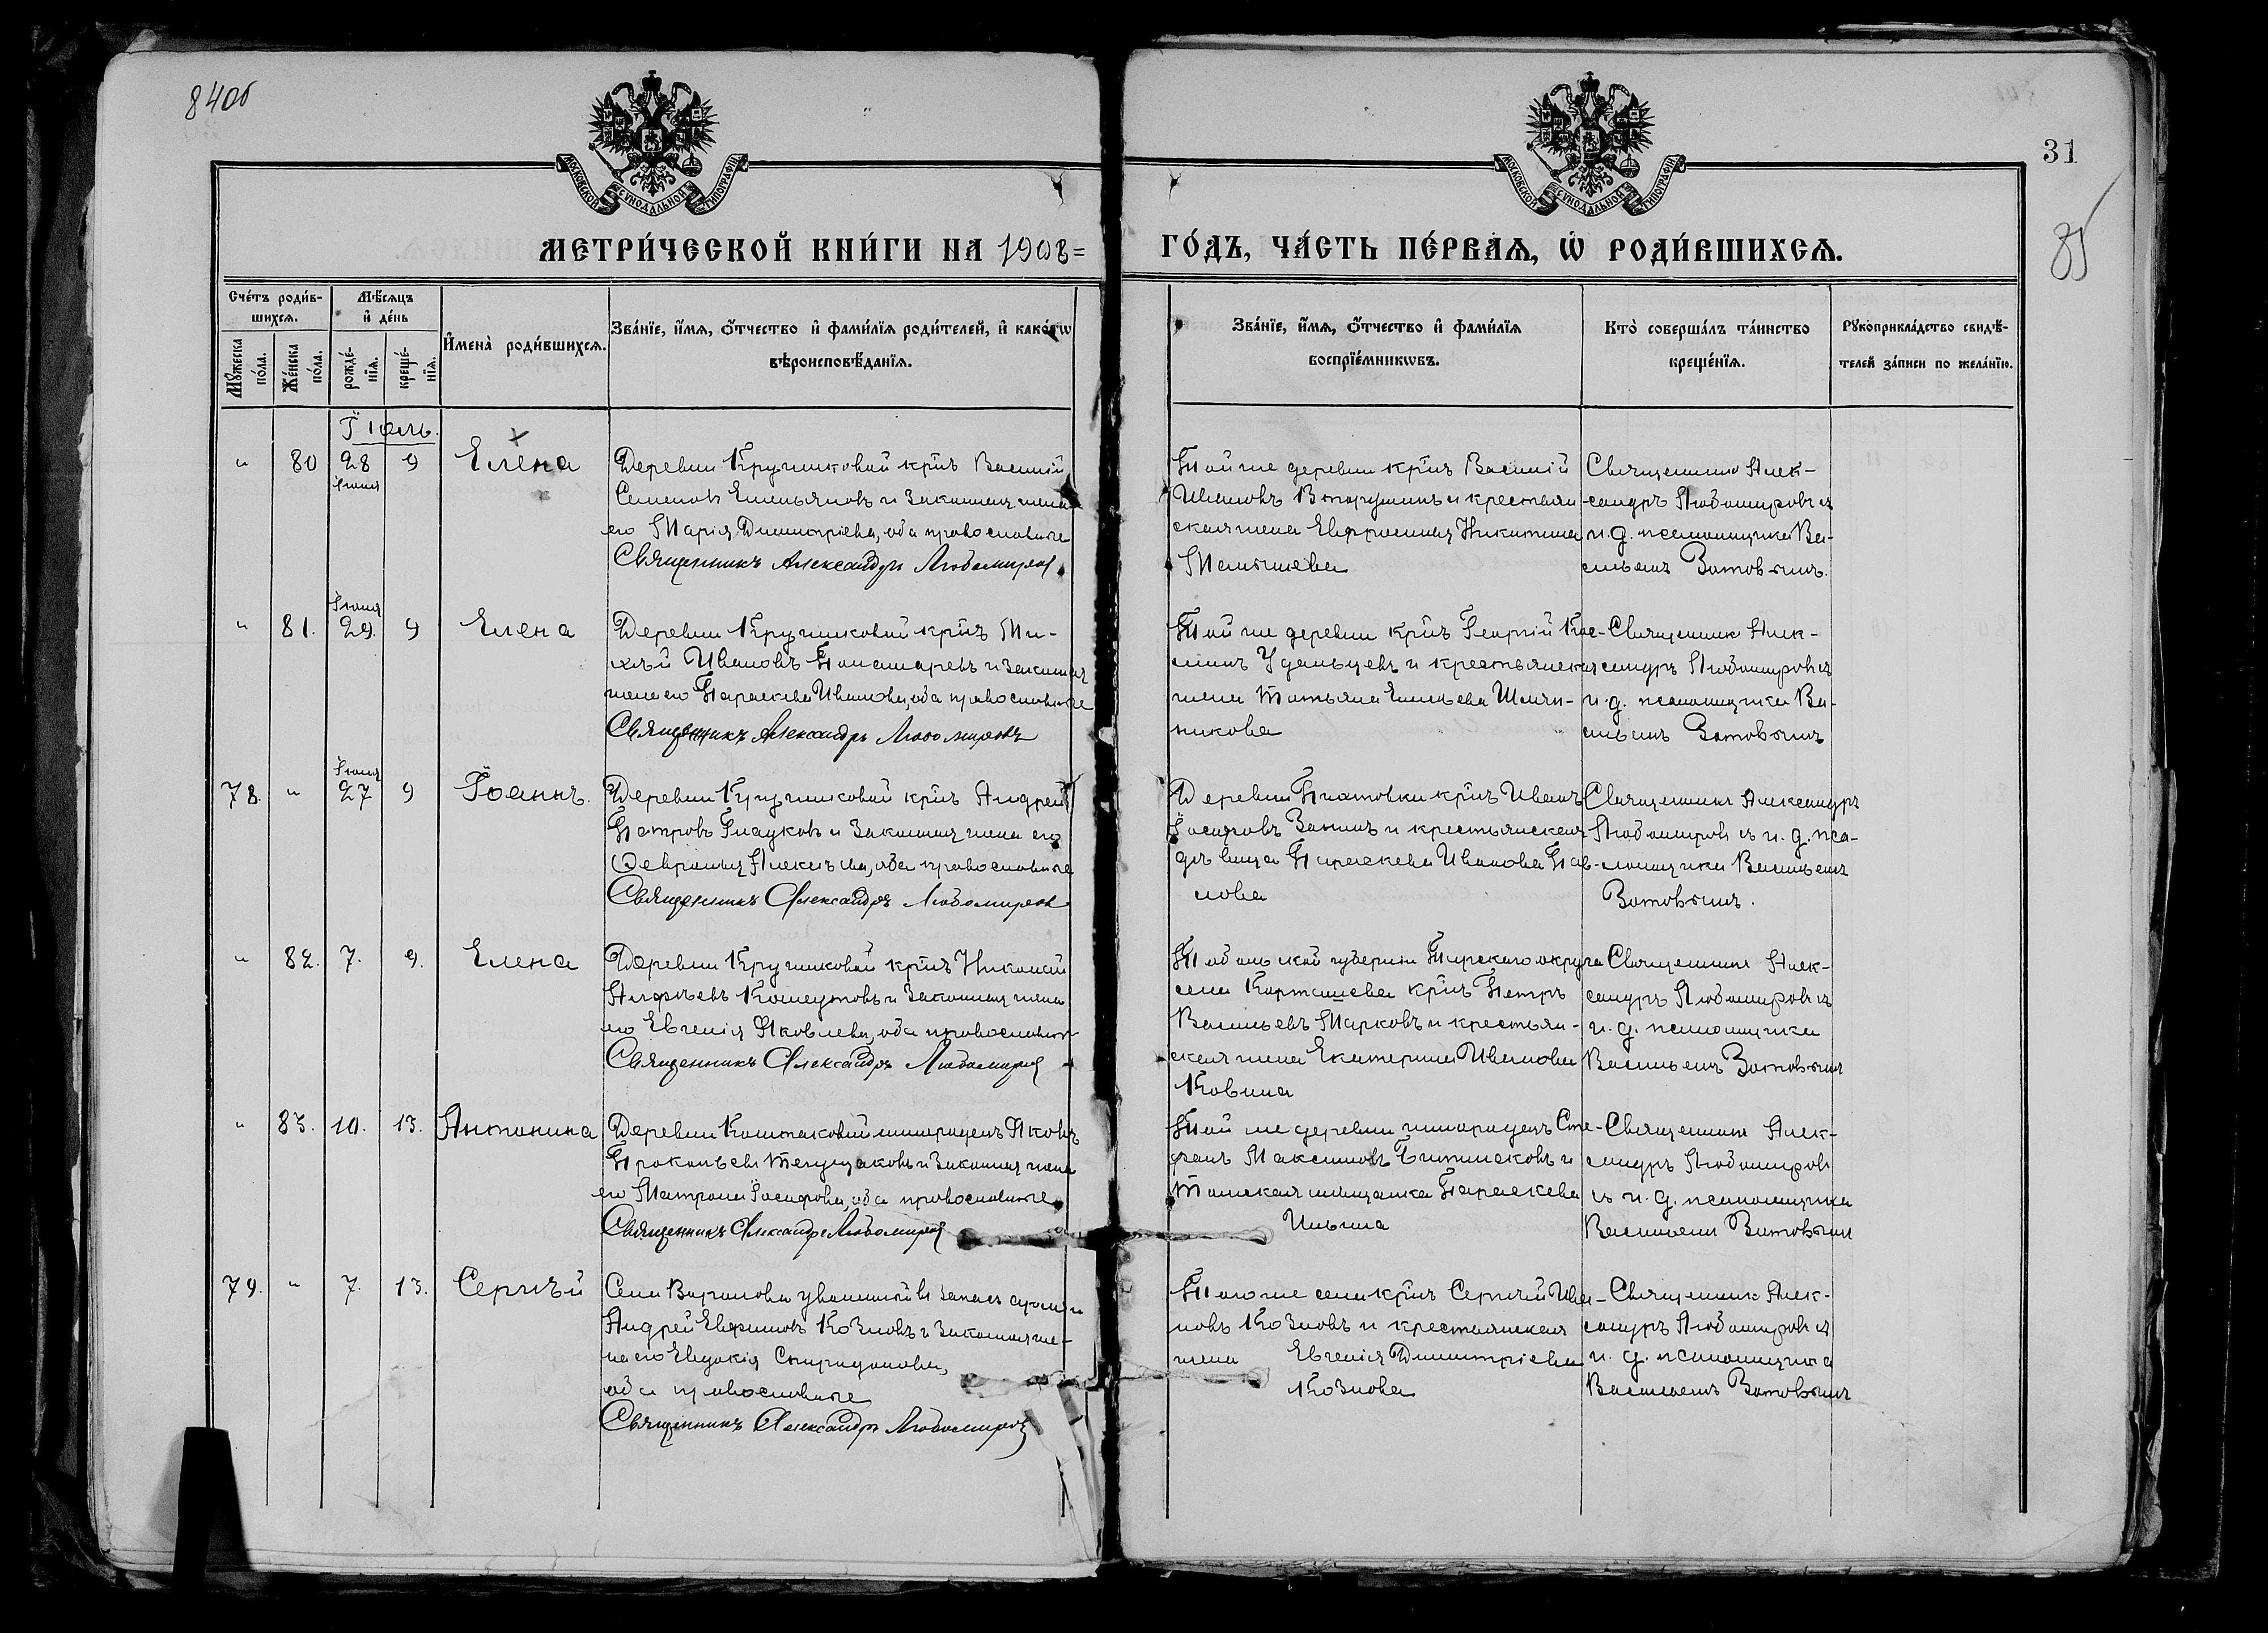 84об
31
85
МОСКОВСКОЙ СѴНОДАЛЬНОЙ ТИПОГРАФІИ
МОСКОВСКОЙ СѴНОДАЛЬНОЙ ТИПОГРАФІИ
МЕТРИ́ЧЕСКОЙ КНИ́ГИ НА 1908=
ГО́ДЪ, ЧА́СТЬ ПЕ́РВАѦ, Ѡ҆ РОДИ́ВШИХСѦ.
Сче́тъ роди́в-
шихсѧ.
Мꙋ́жеска по́ла.
Же́нска по́ла.
Мѣ́сѧцъ
и҆ де́нь
рожде́-
нїѧ.
креще́-
нїѧ.
И҆мена̀ роди́вшихсѧ.
Зва́нїе, и҆́мѧ, ѻ҆́тчество и҆ фами́лїѧ роди́телей, и҆ како́гѡ
вѣроисповѣ́данїѧ.
Зва́нїе, и҆́мѧ, ѻ҆́тчество и҆ фами́лїѧ
воспрїе́мникѡвъ.
Кто̀ соверша́лъ та́инство
креще́нїѧ.
Рꙋкоприкла́дство свидѣ́-
телей за́писи по жела́нїю.
Іюль.
" 80 28 9 Елена
Іюня
Деревни Кругликовой кр҃нъ Василій
Семеновъ Емельяновъ и законная жена
его Марія Димитріева, оба православные
Священникъ Александръ Любомировъ
Той же деревни кр҃нъ Василій
Ивановъ Вторушинъ и крестьян
ская жена Евфросинія Никитина
Священникъ Алек-
сандръ Любомировъ съ
и. д. псаломщика Ва-
сильемъ Зотовымъ.
Іюня
" 81. 29. 9 Елена
Деревни Кругликовой кр҃нъ Ми-
хѣй Ивановъ Пономаревъ и законная
жена его Параскева Иванова, оба православные
Священникъ Александръ Любомировъ
Той же деревни кр҃нъ Георгій Кос-
минъ Удальцевъ и крестьянская
жена Татьяна
никова
Священникъ Алек-
сандръ Любомировъ съ
и. д. псаломщика Ва-
сильемъ Зотовымъ
Іюня
78. " 27 9 Іоаннъ.
Деревни Кругликовой кр҃нъ Андрей
Петровъ Гладковъ и законная жена его
Февронія Алексѣева, оба православные
Священникъ Александръ Любомировъ
Деревни кр҃нъ Иванъ
Іосифовъ Зотинъ и крестьянская
дѣвица Параскева Иванова Пав-
лова
Священникъ Александръ
Любомировъ съ и. д. пса-
ломщика Васильемъ
Зотовымъ.
" 82. 7. 9. Елена
Деревни Кругликовой кр҃нъ Николай
и законная жена
его Евгенія Яковлева, оба православные
Священникъ Александръ Любомировъ
Тобольской губерніи Тарскаго округа
села Карташева кр҃нъ Петръ
Васильевъ Марковъ и крестьян-
ская жена Екатерина Иванова
Ковина
Священникъ Алек-
сандръ Любомировъ съ
и. д. псаломщика
Васильемъ Зотовымъ
" 83. 10. 13. Антонина
Деревни Коштаковой инородецъ Яковъ
Прокопьевъ и законная жена
его Матрона Іосифова, оба православные
Священникъ Александръ Любомировъ
Той же деревни инородецъ Сте-
фанъ Максимовъ и
Томская мѣщанка Параскева
Ильина
Священникъ Алек-
сандръ Любомировъ
съ и. д. псаломщика
Васильемъ Зотовымъ
79. " 7. 13. Сергѣй
Села уволенный въ запасъ арміи
Андрей Евфимовъ Козловъ и законная же-
на его Евдокія Спиридонова,
оба православные
Священникъ Александръ Любомировъ
Того же села кр҃нъ Сергѣй Ива-
новъ Козловъ и крестьянская
жена Евгенія Димитріева
Козлова
Священникъ Алек-
сандръ Любомировъ съ
и. д. псаломщика
Васильемъ Зотовымъ